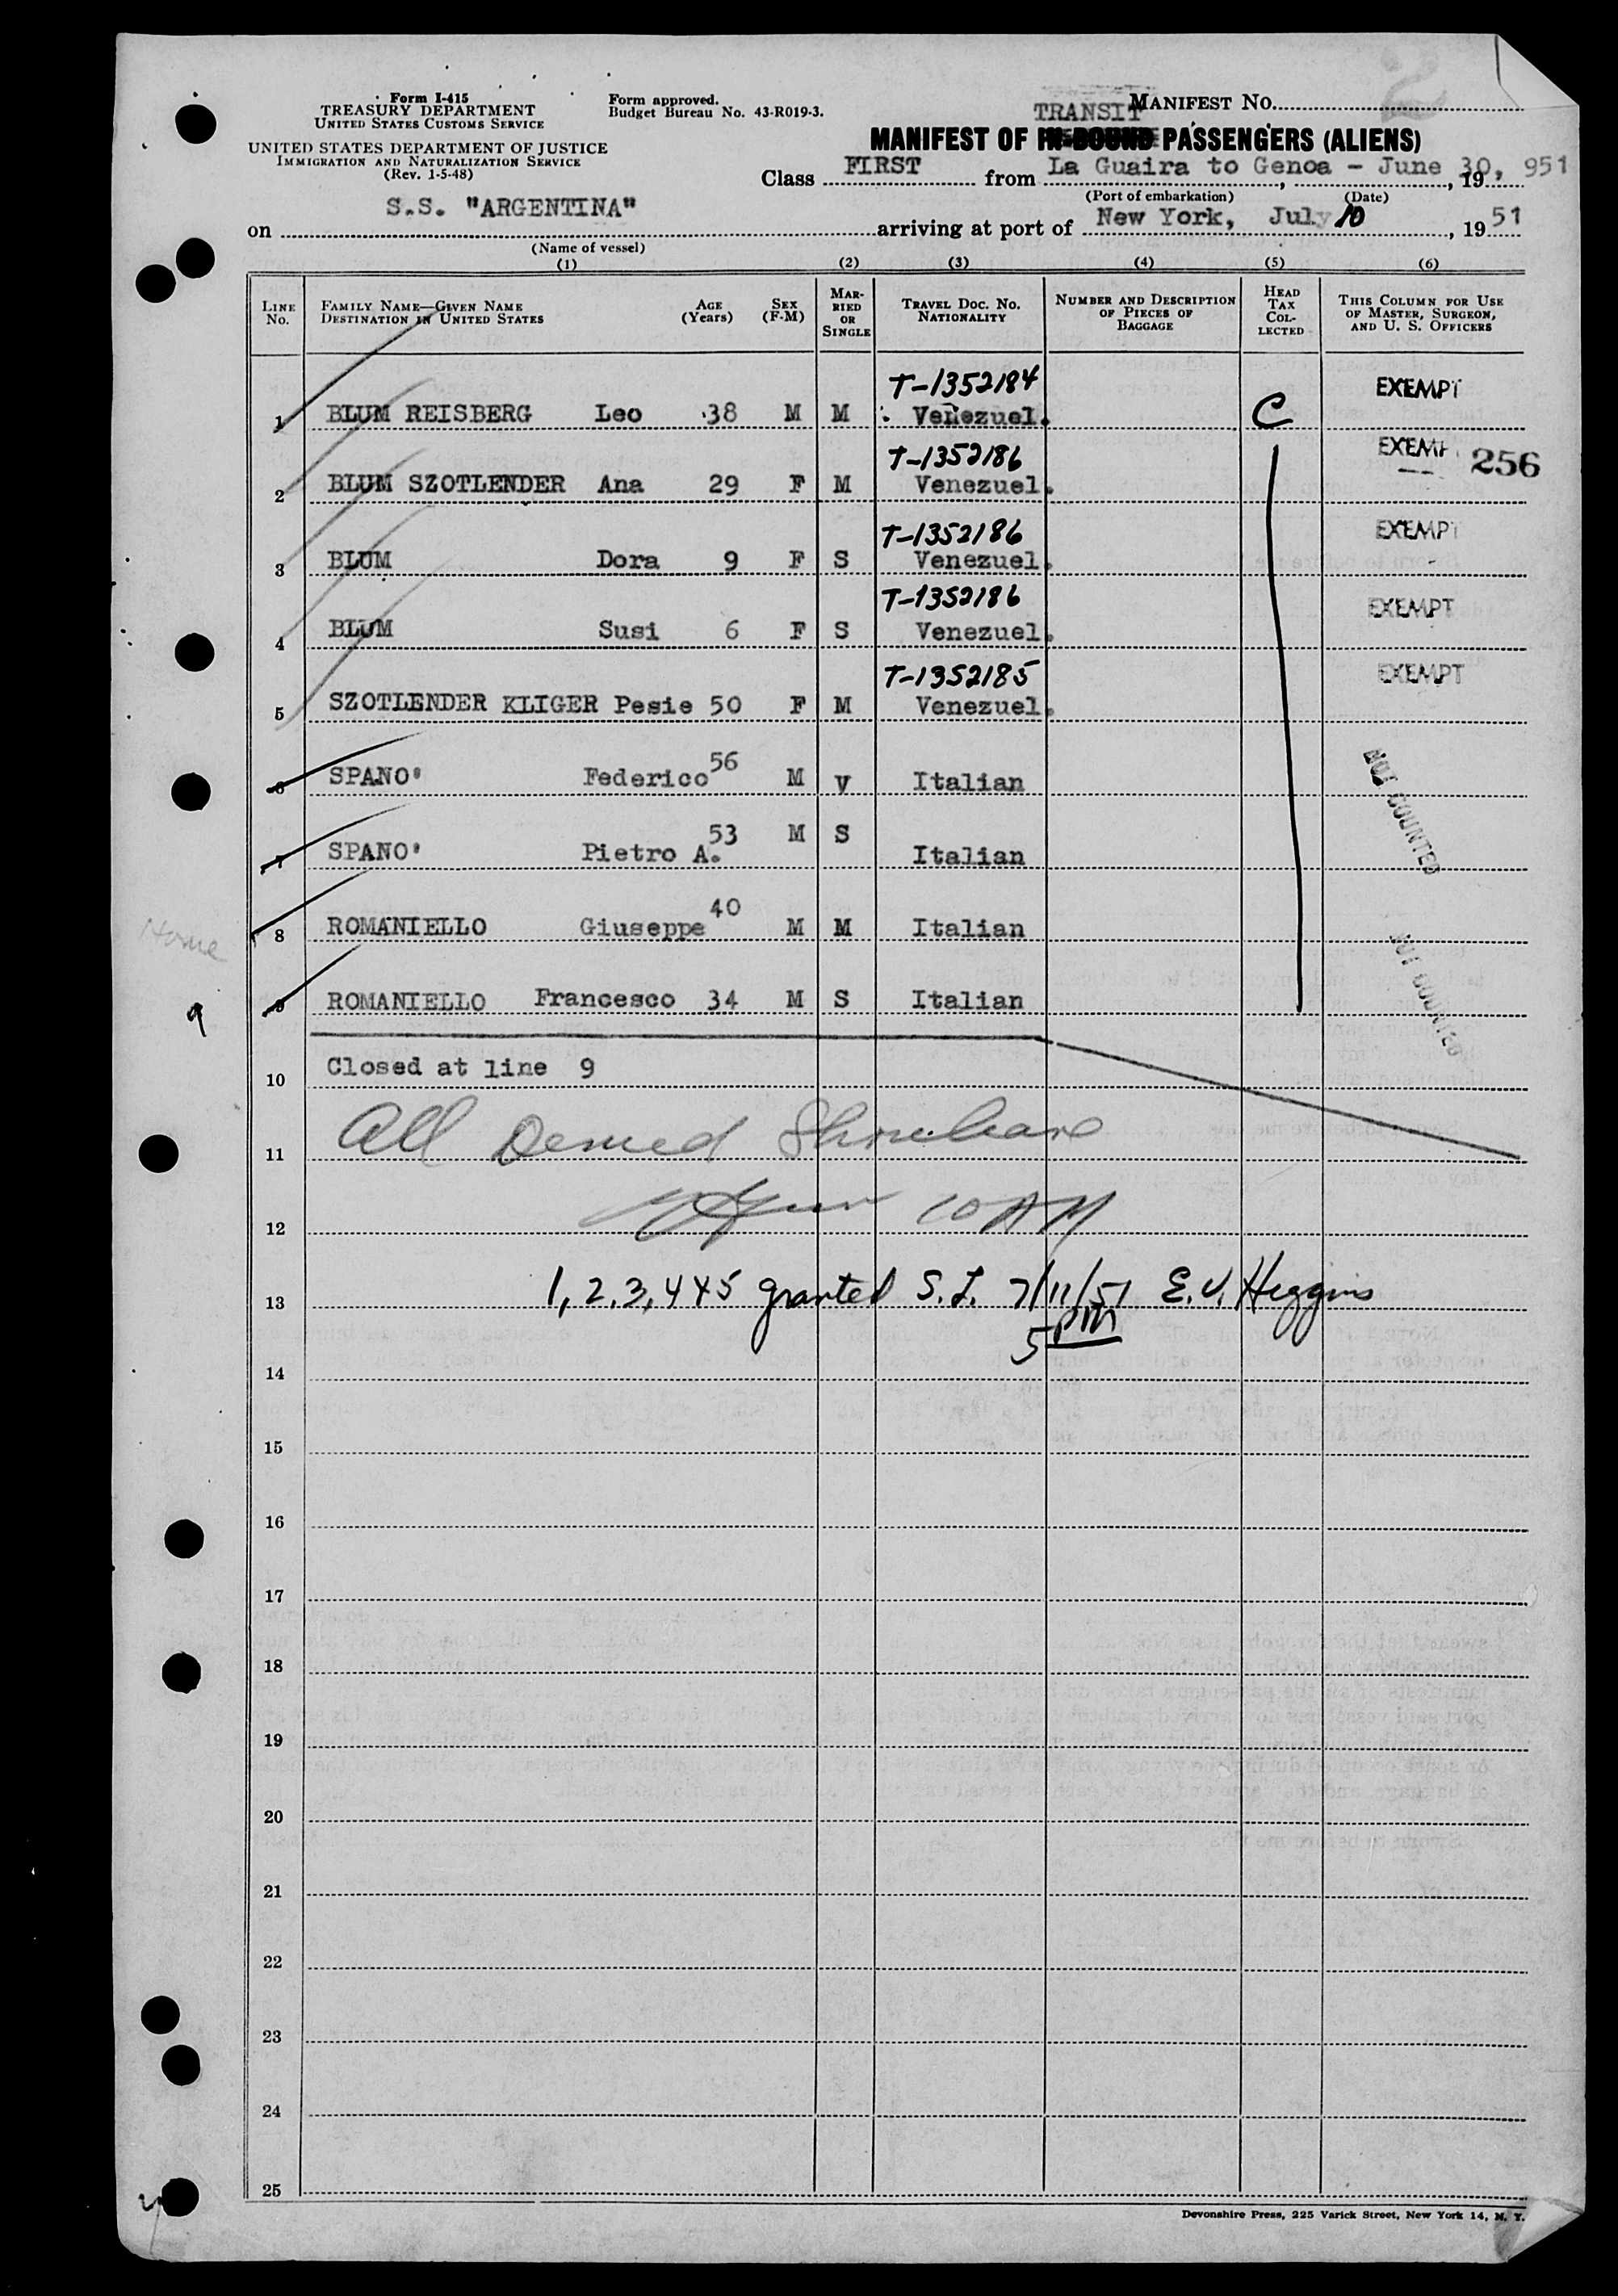 2
Form I-415
TREASURY DEPARTMENT
UNITED STATES CUSTOMS SERVICE
UNITED STATES DEPARTMENT OF JUSTICE
IMMIGRATION AND NATURALIZATION SERVICE
(Rev. 1-5-48)
Form approved.
Budget Bureau No. 43-R019-3.
MANIFEST NO.
TRANSIT
MANIFEST OF IN-BOUND PASSENGERS (ALIENS)
Class FIRST from La Guaira to Genoa - June 30, 1951
(Port of embarkation) (Date)
on S.S. "ARGENTINA" arriving at port of New York, July 10, 1951
(Name of vessel)
(1) (2) (3) (4) (5) (6)
LINE NO. FAMILY NAME—GIVEN NAME DESTINATION IN UNITED STATES AGE (Years) SEX (F-M) MARRIED OR SINGLE TRAVEL DOC. NO. NATIONALITY NUMBER AND DESCRIPTION OF PIECES OF BAGGAGE HEAD TAX COLLECTED THIS COLUMN FOR USE OF MASTER, SURGEON, AND U. S. OFFICERS
T-1352184 EXEMPT
1 BLUM REISBERG Leo 38 M M Venezuel. C
T-1352186 EXEMPT 256
2 BLUM SZOTLENDER Ana 29 F M Venezuel.
T-1352186 EXEMPT
3 BLUM Dora 9 F S Venezuel.
T-1352186 EXEMPT
4 BLUM Susi 6 F S Venezuel.
T-1352185 EXEMPT
5 SZOTLENDER KLIGER Pesie 50 F M Venezuel.
6 SPANO' Federico 56 M V Italian
NOT COUNTED
7 SPANO' Pietro A. 53 M S Italian
8 ROMANIELLO Giuseppe 40 M M Italian
Home
NOT COUNTED
9 9 ROMANIELLO Francesco 34 M S Italian
10 Closed at line 9
11 All Denied Shoreleave
12 10 AM
13 1, 2, 3, 4 & 5 granted S.L. 7/11/51 E.J. Higgins
5 PM
14
15
16
17
18
19
20
21
22
23
24
25
Devonshire Press, 225 Varick Street, New York 14, N. Y.